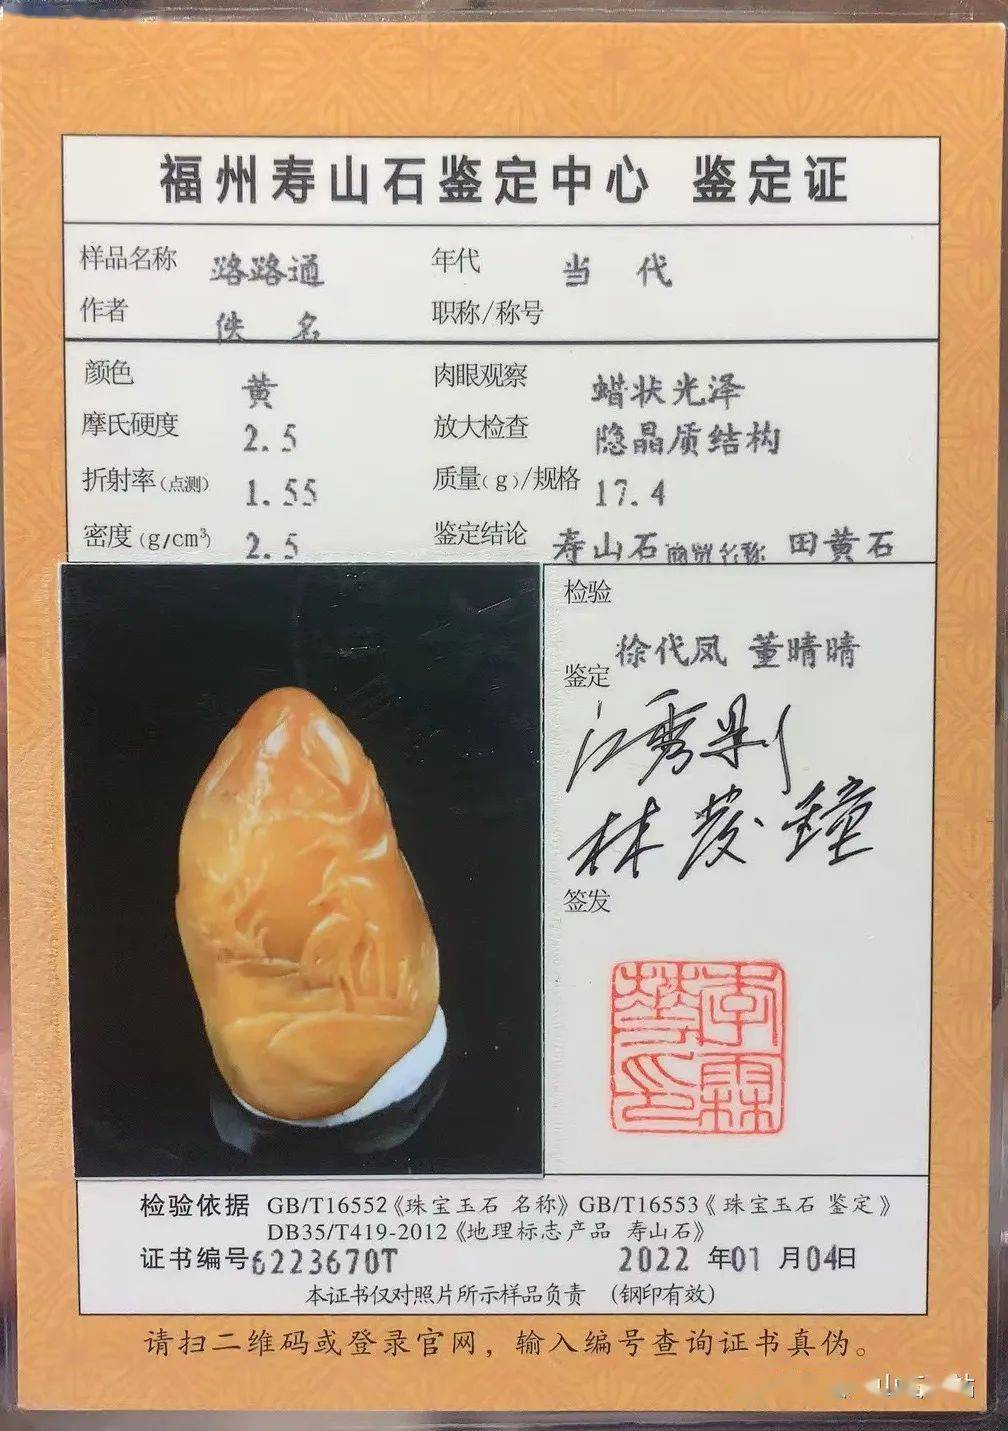 福州寿山石鉴定中心 鉴定证
样品名称 路路通 年代 当 代
作者 佚 名 职称/称号
颜色 黄 肉眼观察 蜡状光泽
摩氏硬度 2.5 放大检查 隐晶质结构
折射率(点测) 1.55 质量(g)/规格 17.4
密度(g/cm³) 2.5 鉴定结论 寿山石 商贸名称 田黄石
检验
徐代凤 董晴晴
鉴定
江秀
林发鐘
签发
李霖
印
检验依据 GB/T16552《珠宝玉石 名称》GB/T16553《珠宝玉石 鉴定》
DB35/T419-2012《地理标志产品 寿山石》
证书编号6223670T 2022 年01 月04日
本证书仅对照片所示样品负责 (钢印有效)
请扫二维码或登录官网，输入编号查询证书真伪。